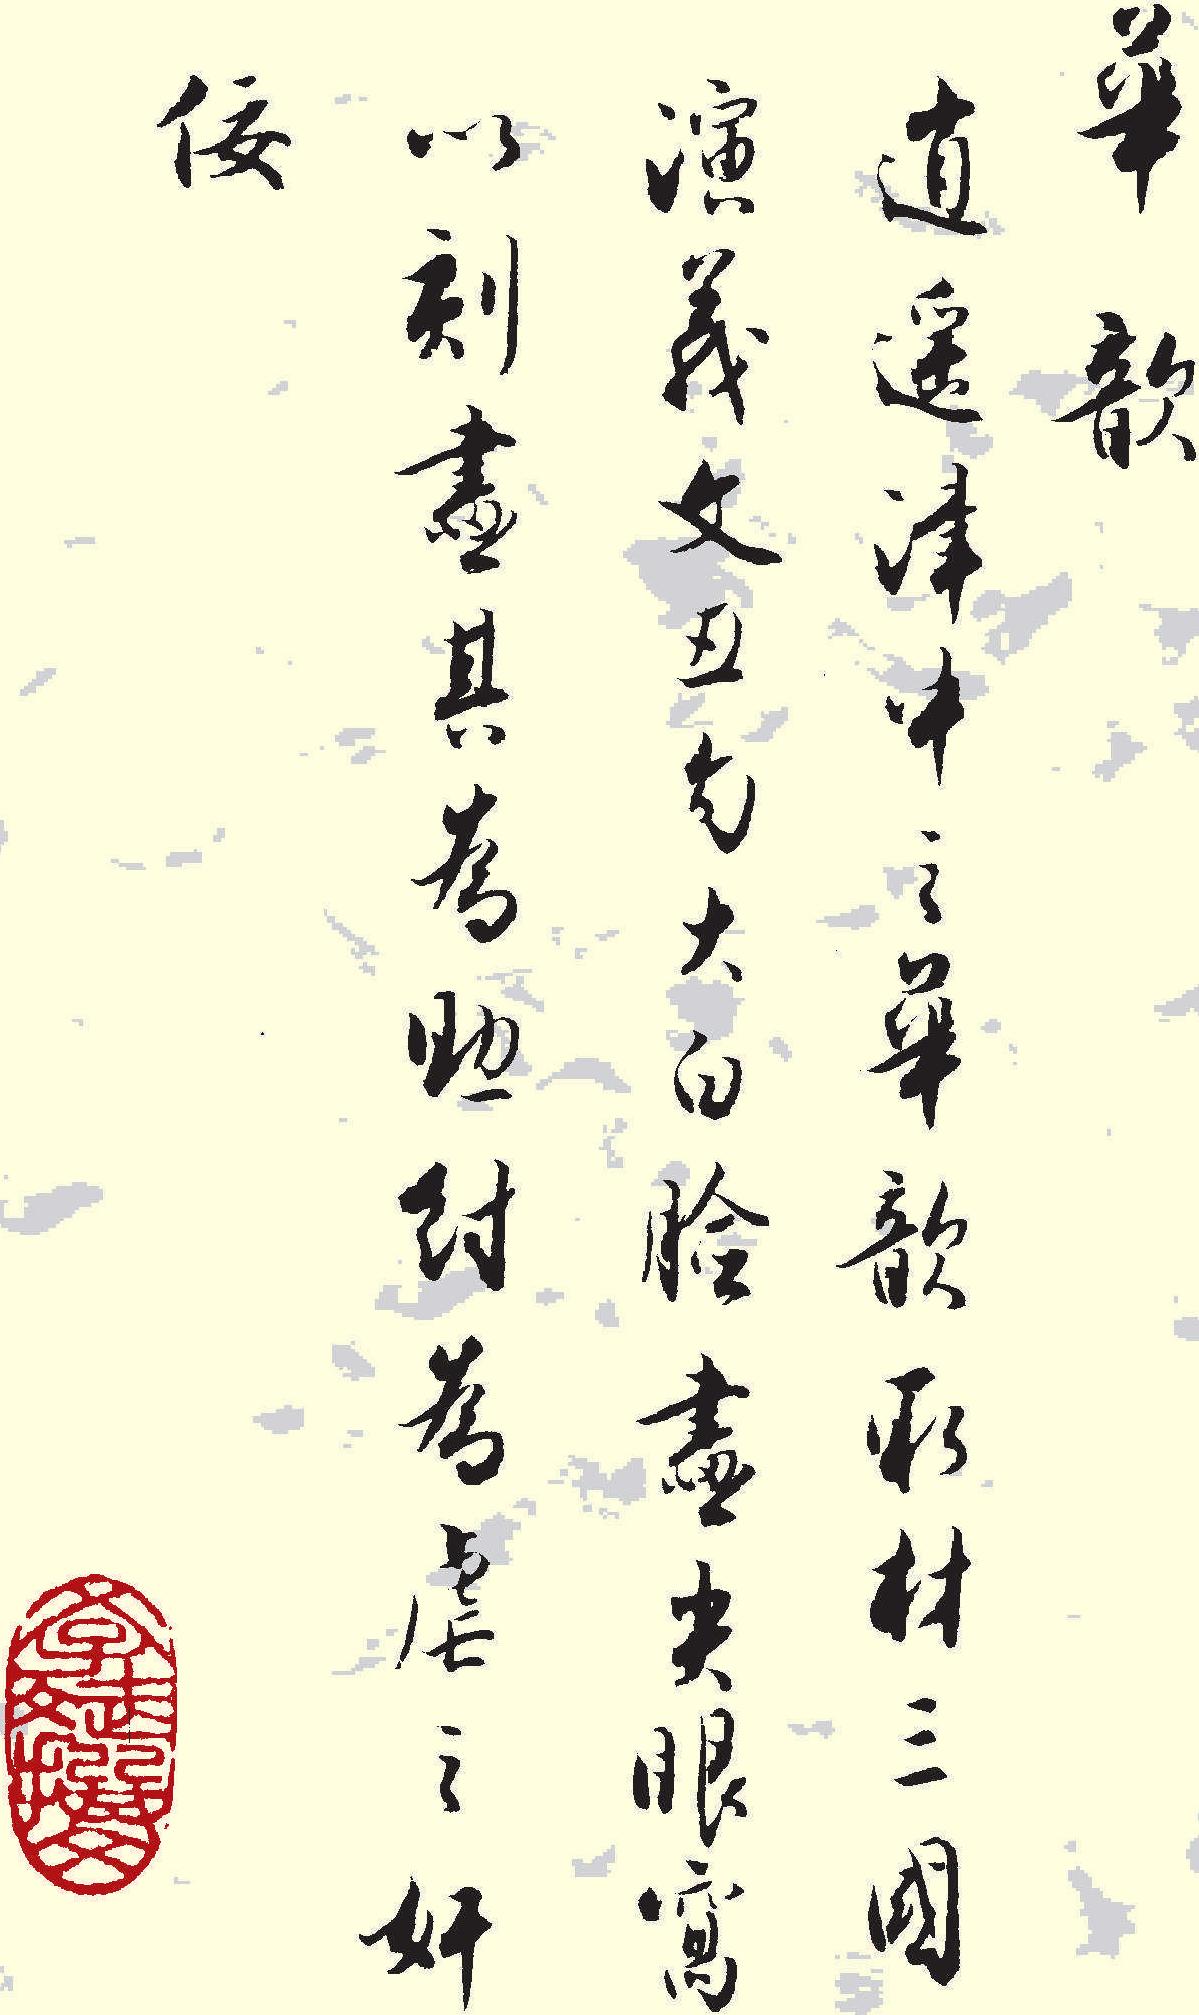 華歆
逍遥津中之華歆取材三國
演義文丑勾大白臉畫尖眼窩
以刻畫其為助紂為虐之奸
佞